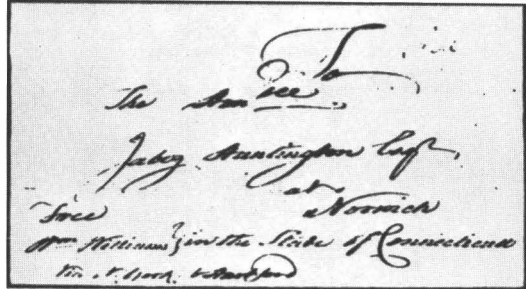 To
The Honble
Jabez Huntington Esqr.
at
Free Norwich
Wm Williams in the State of Connecticut
via N. York & Hartford